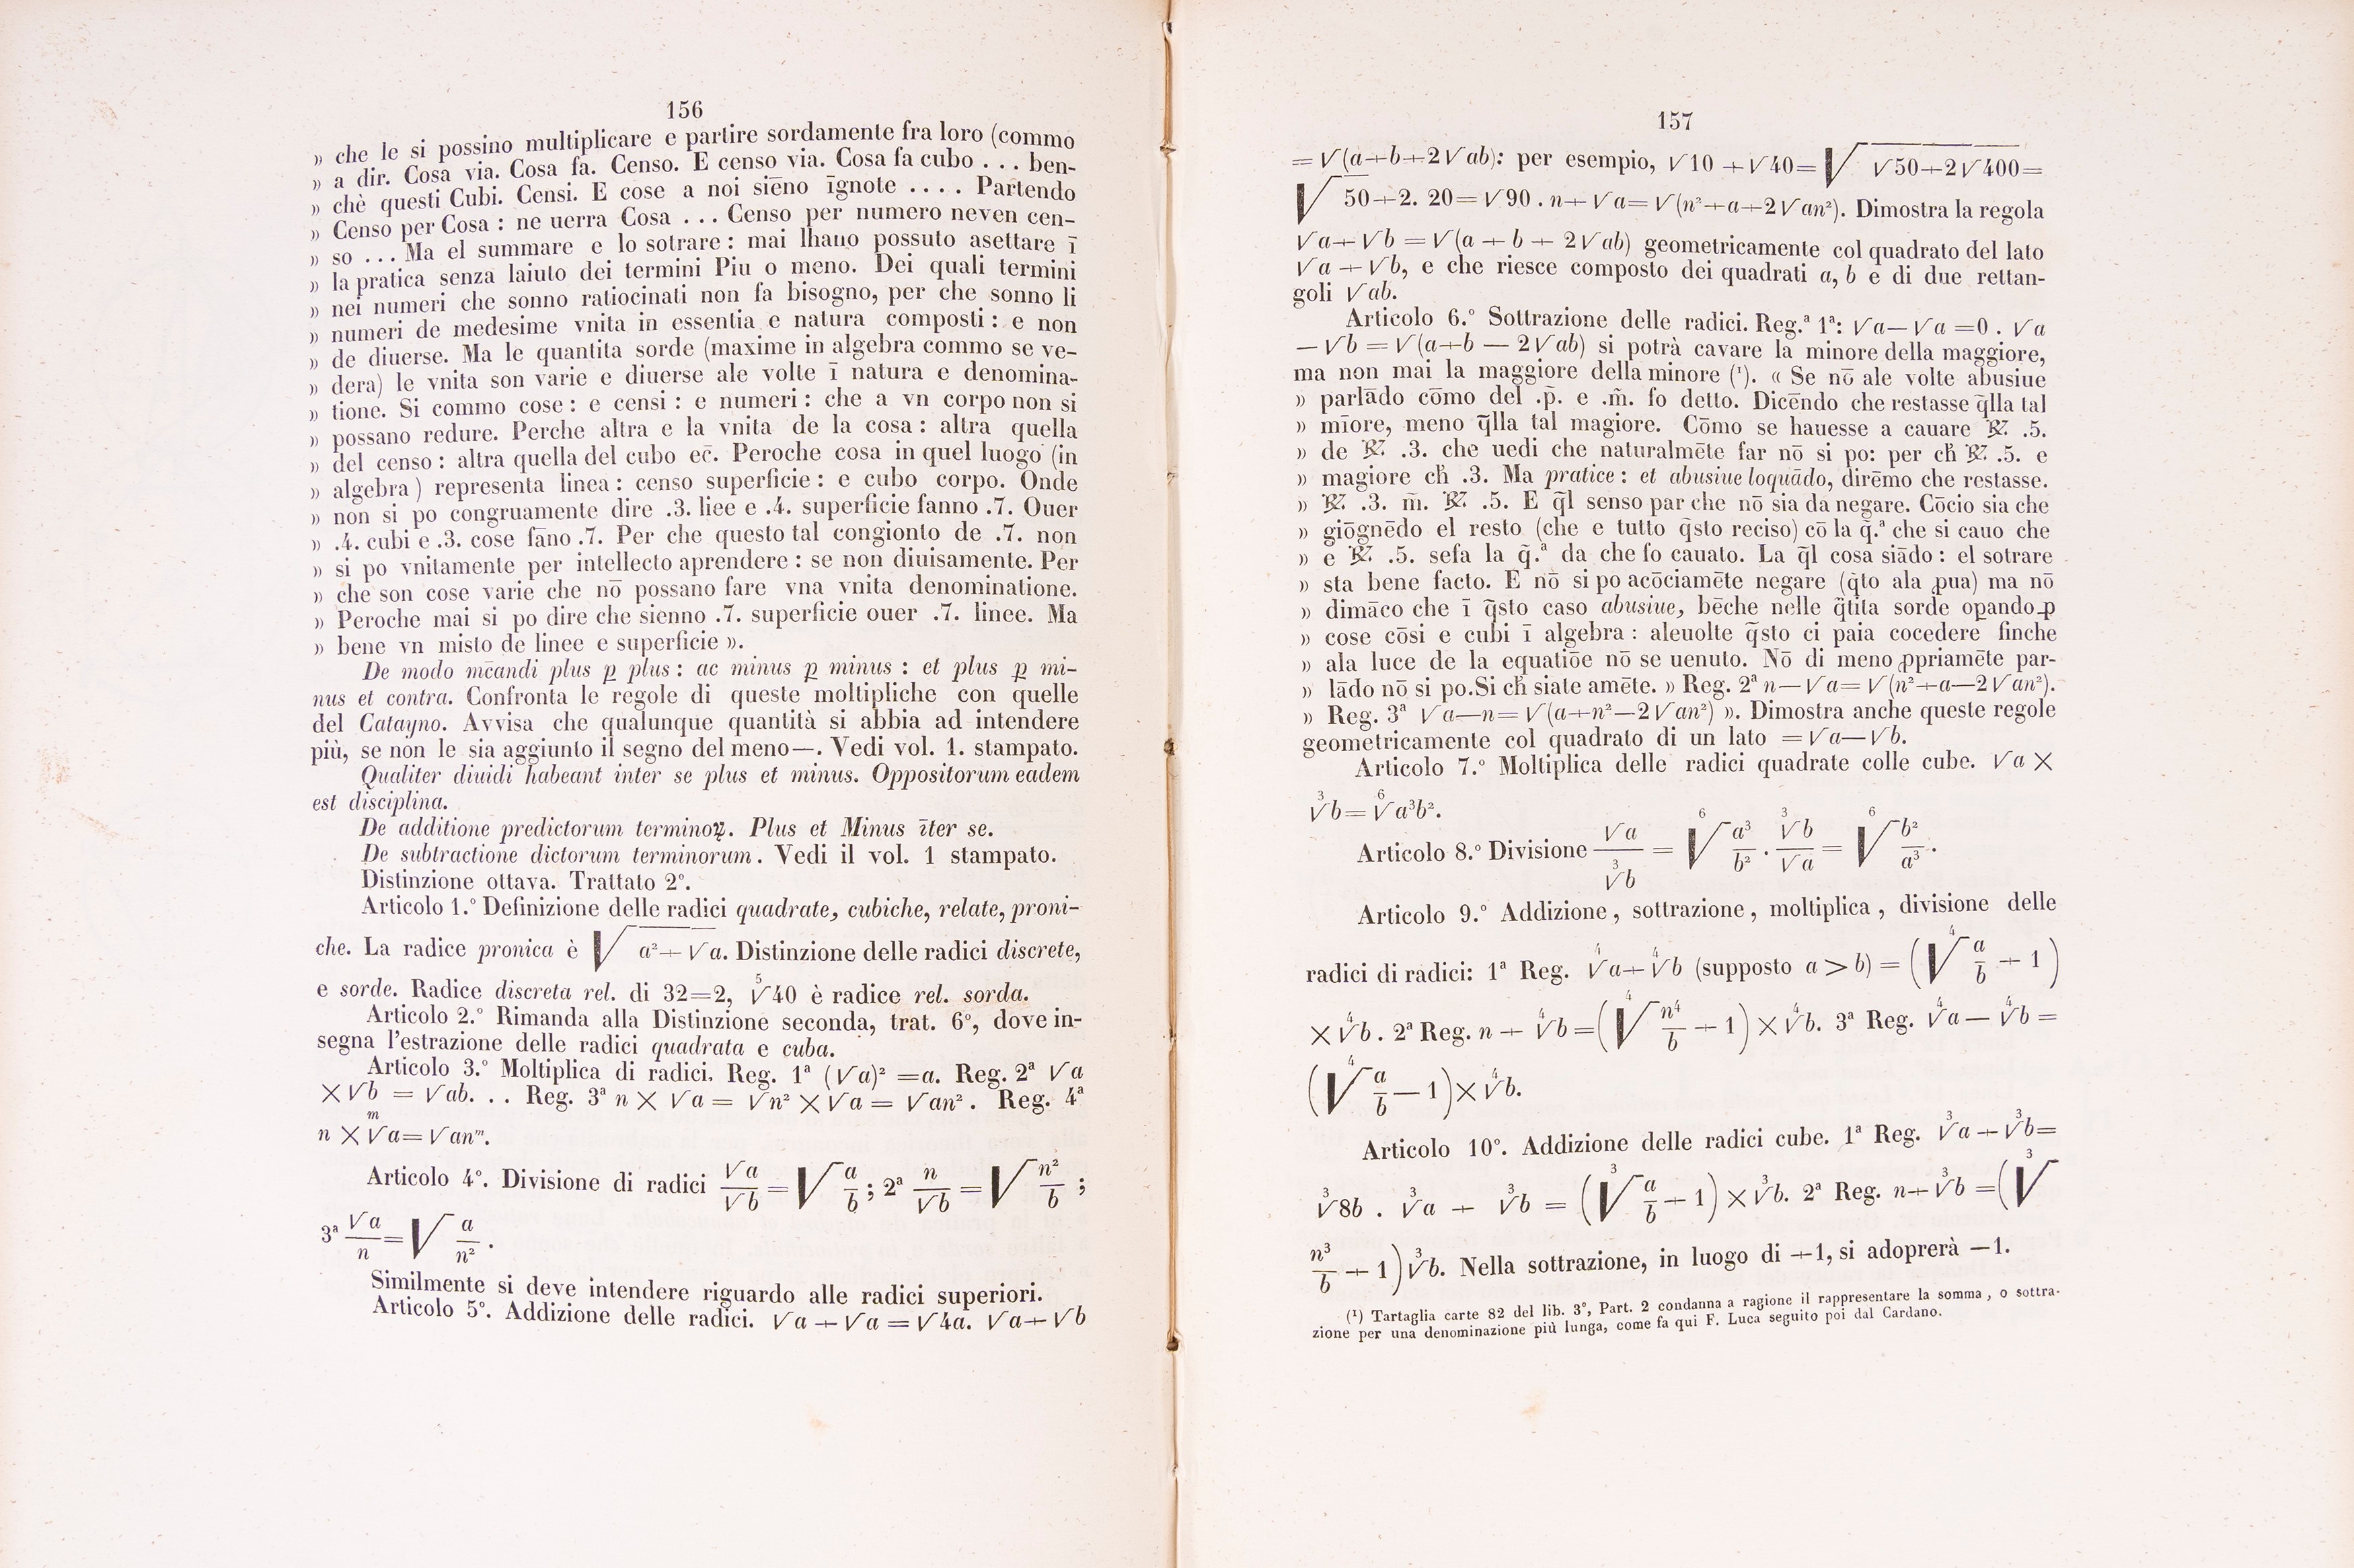 156
» che le si possino multiplicare e partire sordamente fra loro (commo
» a dir. Cosa via. Cosa fa. Censo. E censo via. Cosa fa cubo . . . ben-
» chè questi Cubi. Censi. E cose a noi siēno īgnote . . . . Partendo
» Censo per Cosa : ne uerra Cosa . . . Censo per numero neven cen-
» so . . . Ma el summare e lo sotrare : mai lhano possuto asettare ī
» la pratica senza laiuto dei termini Piu o meno. Dei quali termini
» nei numeri che sonno ratiocinati non fa bisogno, per che sonno li
» numeri de medesime vnita in essentia e natura composti : e non
» de diuerse. Ma le quantita sorde (maxime in algebra commo se ve-
» dera) le vnita son varie e diuerse ale volte ī natura e denomina-
» tione. Si commo cose : e censi : e numeri : che a vn corpo non si
» possano redure. Perche altra e la vnita de la cosa : altra quella
» del censo : altra quella del cubo ec̄. Peroche cosa in quel luogo (in
» algebra) representa linea : censo superficie : e cubo corpo. Onde
» non si po congruamente dire .3. liee e .4. superficie fanno .7. Ouer
» .4. cubi e .3. cose fāno .7. Per che questo tal congionto de .7. non
» si po vnitamente per intellecto aprendere : se non diuisamente. Per
» che son cose varie che nō possano fare vna vnita denominatione.
» Peroche mai si po dire che sienno .7. superficie ouer .7. linee. Ma
» bene vn misto de linee e superficie ».
De modo mc̄andi plus ꝑ plus : ac minus ꝑ minus : et plus ꝑ mi-
nus et contra. Confronta le regole di queste moltipliche con quelle
del Catayno. Avvisa che qualunque quantità si abbia ad intendere
più, se non le sia aggiunto il segno del meno—. Vedi vol. 1. stampato.
Qualiter diuidi habeant inter se plus et minus. Oppositorum eadem
est disciplina.
De additione predictorum terminoꝝ. Plus et Minus īter se.
De subtractione dictorum terminorum. Vedi il vol. 1 stampato.
Distinzione ottava. Trattato 2°.
Articolo 1.° Definizione delle radici quadrate, cubiche, relate, proni-
che. La radice pronica è √(a²+√a). Distinzione delle radici discrete,
e sorde. Radice discreta rel. di 32=2, ⁵√40 è radice rel. sorda.
Articolo 2.° Rimanda alla Distinzione seconda, trat. 6°, dove in-
segna l'estrazione delle radici quadrata e cuba.
Articolo 3.° Moltiplica di radici. Reg. 1ª (√a)² =a. Reg. 2ª √a
×√b = √ab. . . Reg. 3ª n × √a = √n² × √a = √an². Reg. 4ª
n × ᵐ√a=√anᵐ.
Articolo 4°. Divisione di radici √a/√b = √a/b ; 2ª n/√b = √n²/b ;
3ª √a/n = √a/n² .
Similmente si deve intendere riguardo alle radici superiori.
Articolo 5°. Addizione delle radici. √a + √a = √4a. √a+√b
157
=√(a+b+2√ab): per esempio, √10 +√40=√(√50+2√400)=
√50+2. 20=√90 . n+√a=√(n²+a+2√an²). Dimostra la regola
√a+√b =√(a + b + 2√ab) geometricamente col quadrato del lato
√a +√b, e che riesce composto dei quadrati a, b e di due rettan-
goli √ab.
Articolo 6.° Sottrazione delle radici. Reg.ª 1ª: √a—√a =0 . √a
—√b =√(a+b — 2√ab) si potrà cavare la minore della maggiore,
ma non mai la maggiore della minore (¹). « Se nō ale volte abusiue
» parlādo cōmo del .p̄. e .m̄. fo detto. Dicēndo che restasse q̄lla tal
» mīore, meno q̄lla tal magiore. Cōmo se hauesse a cauare ℞. .5.
» de ℞. .3. che uedi che naturalmēte far nō si po: per cħ ℞. .5. e
» magiore cħ .3. Ma pratice : et abusiue loquādo, dirēmo che restasse.
» ℞. .3. m̄. ℞. .5. E q̄l senso par che nō sia da negare. Cōcio sia che
» giōgnēdo el resto (che e tutto q̄sto reciso) cō la q̄.ª che si cauo che
» e ℞. .5. sefa la q̄.ª da che fo cauato. La q̄l cosa siādo : el sotrare
» sta bene facto. E nō si po acōciamēte negare (q̄to ala ꝓua) ma nō
» dimāco che ī q̄sto caso abusiue, bēche nelle q̄tita sorde opando ꝑ
» cose cōsi e cubi ī algebra : aleuolte q̄sto ci paia cocedere finche
» ala luce de la equatiōe nō se uenuto. Nō di meno ꝓpriamēte par-
» lādo nō si po.Si cħ siate amēte. » Reg. 2ª n—√a=√(n²+a—2√an²).
» Reg. 3ª √a—n=√(a+n²—2√an²) ». Dimostra anche queste regole
geometricamente col quadrato di un lato =√a—√b.
Articolo 7.° Moltiplica delle radici quadrate colle cube. √a ×
³√b=⁶√a³b².
Articolo 8.° Divisione √a/³√b = ⁶√a³/b² . ³√b/√a = ⁶√b²/a³ .
Articolo 9.° Addizione, sottrazione, moltiplica, divisione delle
radici di radici: 1ª Reg. ⁴√a+⁴√b (supposto a > b) = (⁴√a/b + 1)
×⁴√b . 2ª Reg. n + ⁴√b =(⁴√n⁴/b + 1) ×⁴√b. 3ª Reg. ⁴√a — ⁴√b =
(⁴√a/b — 1)×⁴√b.
Articolo 10°. Addizione delle radici cube. 1ª Reg. ³√a +³√b=
³√8b . ³√a + ³√b = (³√a/b + 1) ×³√b. 2ª Reg. n+³√b =(³√
n³/b + 1)³√b. Nella sottrazione, in luogo di +1, si adoprerà —1.
(¹) Tartaglia carte 82 del lib. 3°, Part. 2 condanna a ragione il rappresentare la somma, o sottra-
zione per una denominazione più lunga, come fa qui F. Luca seguito poi dal Cardano.